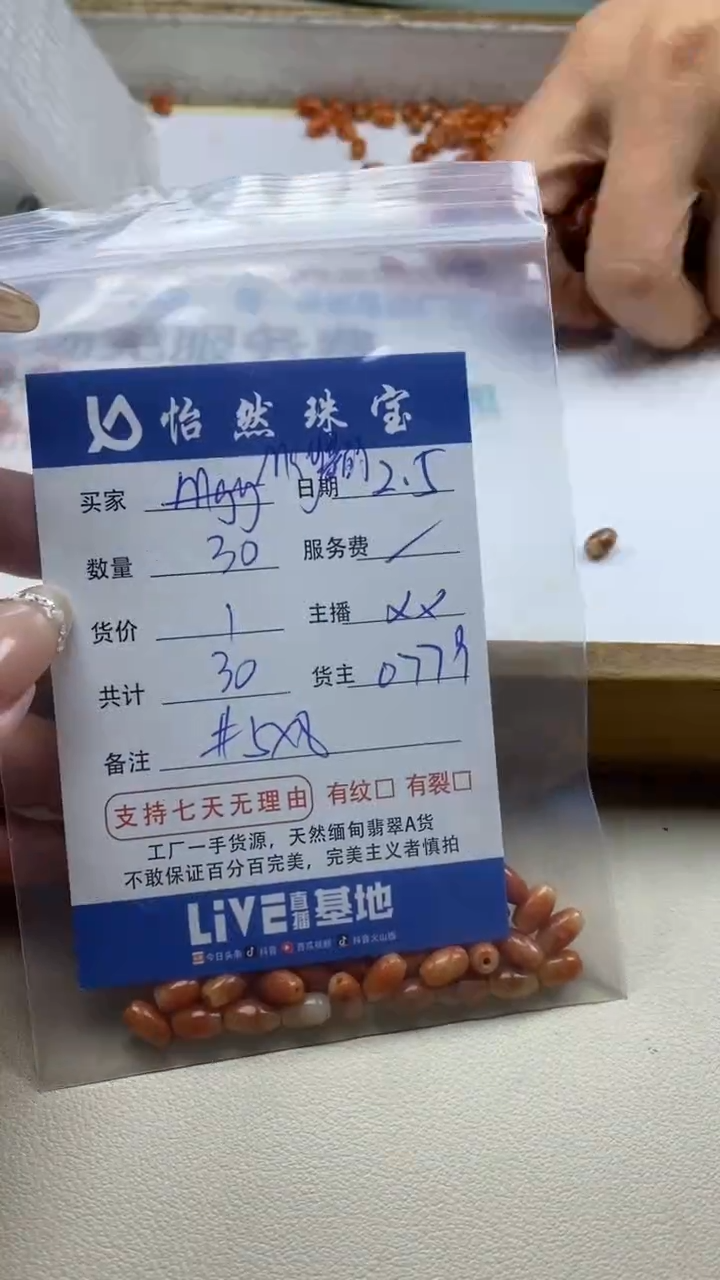 怡然珠宝
买家 Mgy 日期 2.5
数量 30 服务费 /
货价 1 主播 XX
共计 30 货主 0779
备注 #5X8
支持七天无理由 有纹□ 有裂□
工厂一手货源，天然缅甸翡翠A货
不敢保证百分百完美，完美主义者慎拍
LiVE直播基地
今日头条 抖音 西瓜视频 抖音火山版